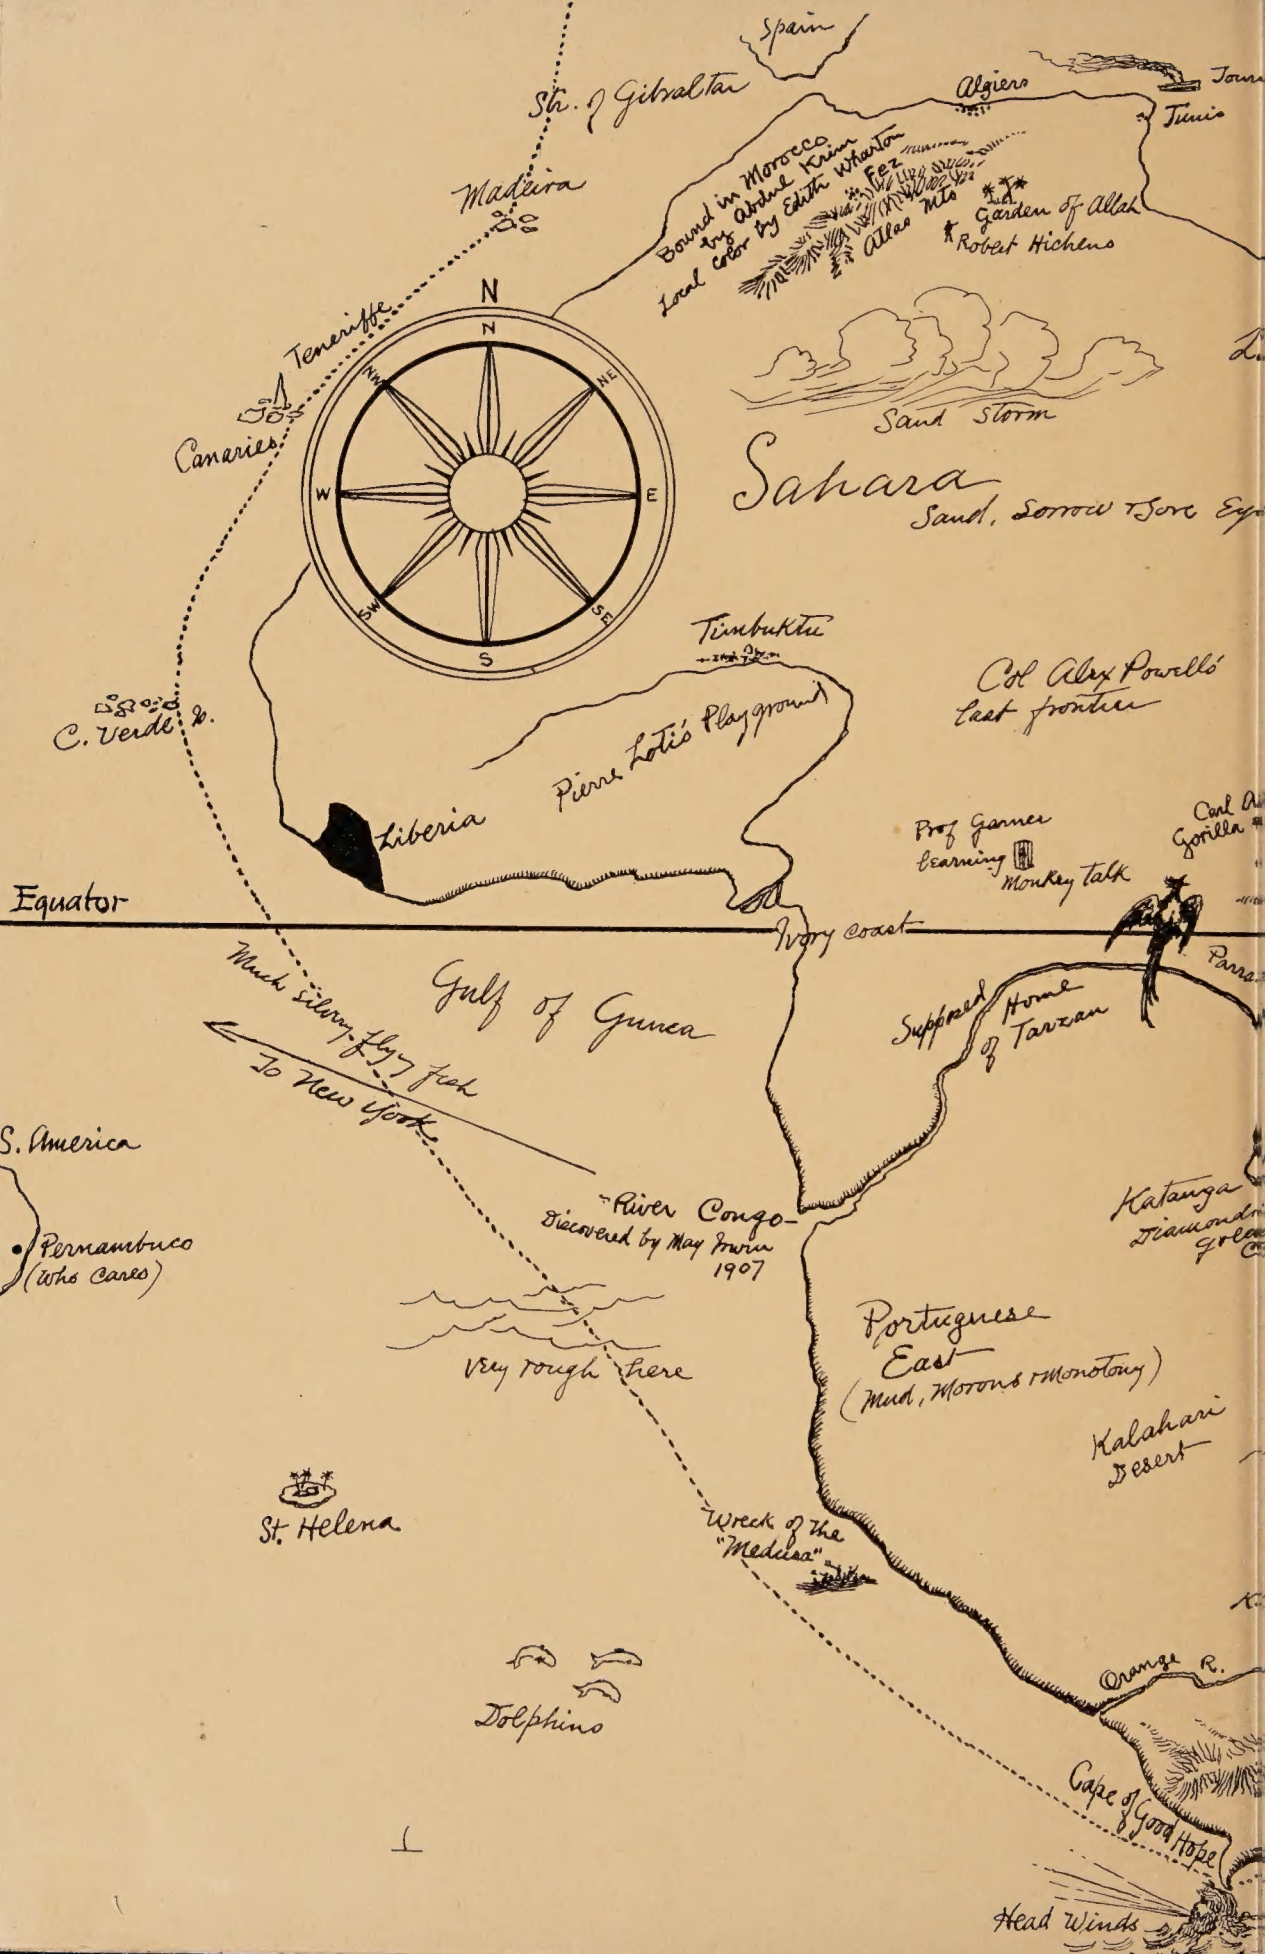 Spain
Str. of Gibraltar
Algiers
Tunis
Madeira
Bound in Morocco
by Abdul Krim
Local color by Edith Wharton
Fez
Atlas Mts
Garden of Allah
Robert Hichens
Teneriffe
Canaries
N
N
NE
E
SE
S
SW
W
NW
Sand Storm
Sahara
Sand, Sorrow & Sore
Timbuktu
Pierre Loti's Playground
Col Alex Powell's
last frontier
C. Verde Is.
Liberia
Prof Garner
learning
Monkey Talk
Carl
Gorilla
Equator
Ivory Coast
Much silvery flyg fish
To New York
Gulf of Gunea
Supposed Home
of Tarzan
S. America
Pernambuco
(Who Cares)
River Congo
Discovered by May Irwin
1907
Katanga
Very rough here
Portuguese
East
(Mud, Morons & Monotony)
Kalahari
Desert
St. Helena
Wreck of the
"Medusa"
Orange R.
Dolphins
Cape of Good Hope
Head Winds